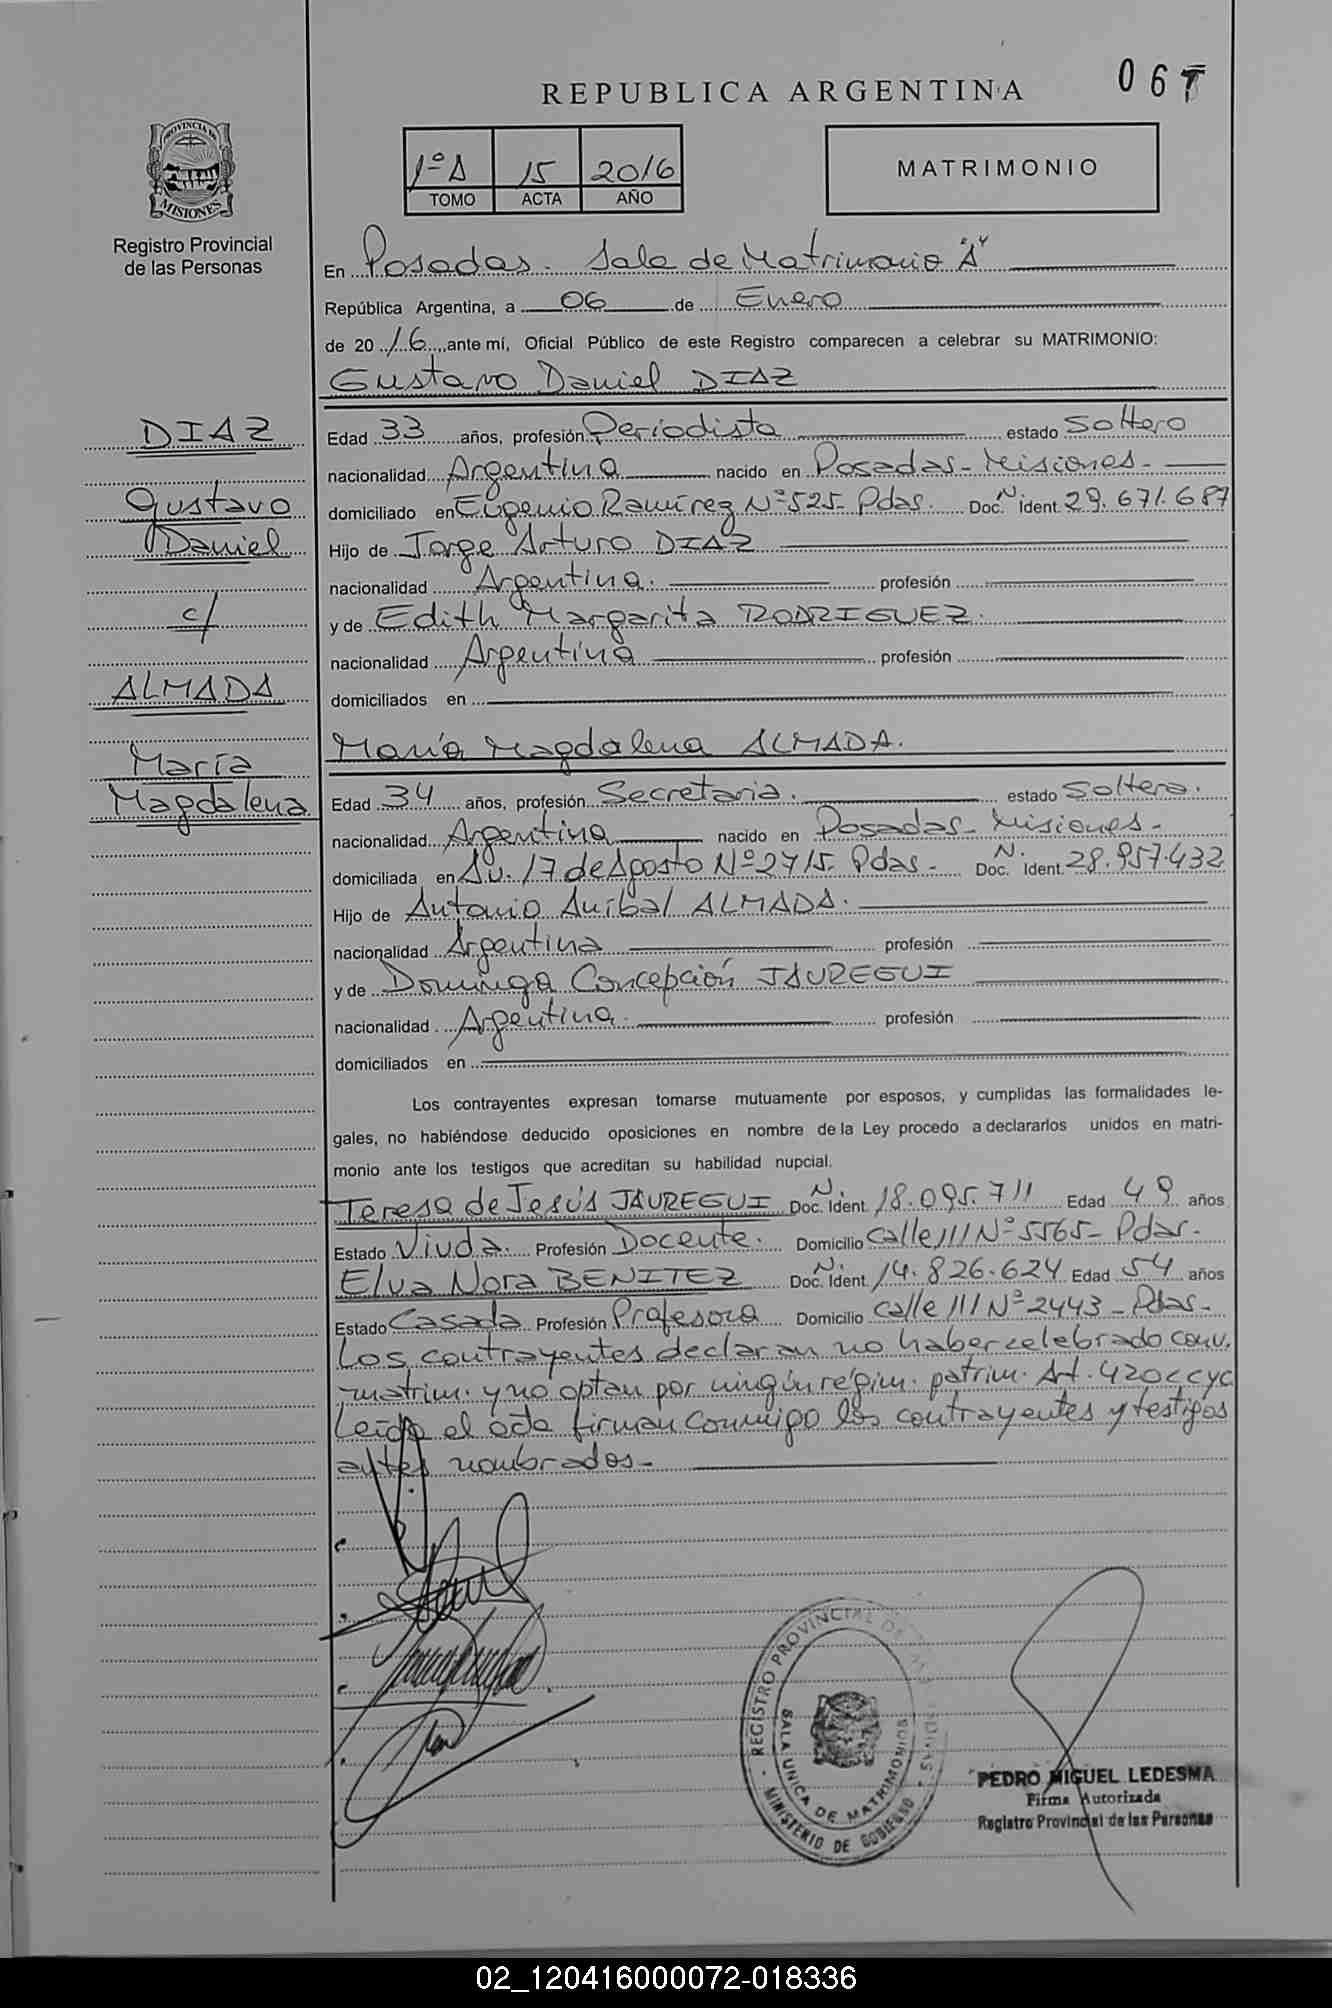 REPUBLICA ARGENTINA
06
1º A 15 2016
TOMO ACTA AÑO
MATRIMONIO
PROVINCIA DE
MISIONES
Registro Provincial
de las Personas
En Posadas. Sala de Matrimonio "A"
República Argentina, a 06 de Enero
de 20 16, ante mí, Oficial Público de este Registro comparecen a celebrar su MATRIMONIO:
Gustavo Daniel DIAZ
DIAZ
Gustavo
Daniel
c/
ALMADA
María
Magdalena
Edad 33 años, profesión Periodista estado Soltero
nacionalidad Argentina nacido en Posadas - Misiones -
domiciliado en Eugenio Ramírez Nº 525 - Pdas. Doc. N. Ident. 29.671.687
Hijo de Jorge Arturo DIAZ
nacionalidad Argentina. profesión
y de Edith Margarita RODRIGUEZ.
nacionalidad Argentina profesión
domiciliados en
María Magdalena ALMADA.
Edad 34 años, profesión Secretaria. estado Soltera.
nacionalidad Argentina nacido en Posadas - Misiones -
domiciliada en Av. 17 de Agosto Nº 2715 - Pdas - Doc. N. Ident. 28.957.432
Hijo de Antonio Anibal ALMADA.
nacionalidad Argentina profesión
y de Dominga Concepción JAUREGUI
nacionalidad Argentina. profesión
domiciliados en
Los contrayentes expresan tomarse mutuamente por esposos, y cumplidas las formalidades le-
gales, no habiéndose deducido oposiciones en nombre de la Ley procedo a declararlos unidos en matri-
monio ante los testigos que acreditan su habilidad nupcial.
Teresa de Jesús JAUREGUI Doc. N. Ident. 18.095.711 Edad 49 años
Estado Viuda. Profesión Docente. Domicilio Calle 111 Nº 5565 - Pdas.
Elva Nora BENITEZ Doc. N. Ident. 14.826.624 Edad 54 años
Estado Casada Profesión Profesora Domicilio Calle 111 Nº 2443 - Pdas -
Los contrayentes declaran no haber celebrado conv.
matrim. y no optan por ningún régim. patrim. Art. 420 CCyC
Leída el acta firman conmigo los contrayentes y testigos
antes nombrados -
REGISTRO PROVINCIAL DE LAS
SALA UNICA DE MATRIMONIOS
MINISTERIO DE GOBIERNO
PEDRO MIGUEL LEDESMA
Firma Autorizada
Registro Provincial de las Personas
02_120416000072-018336